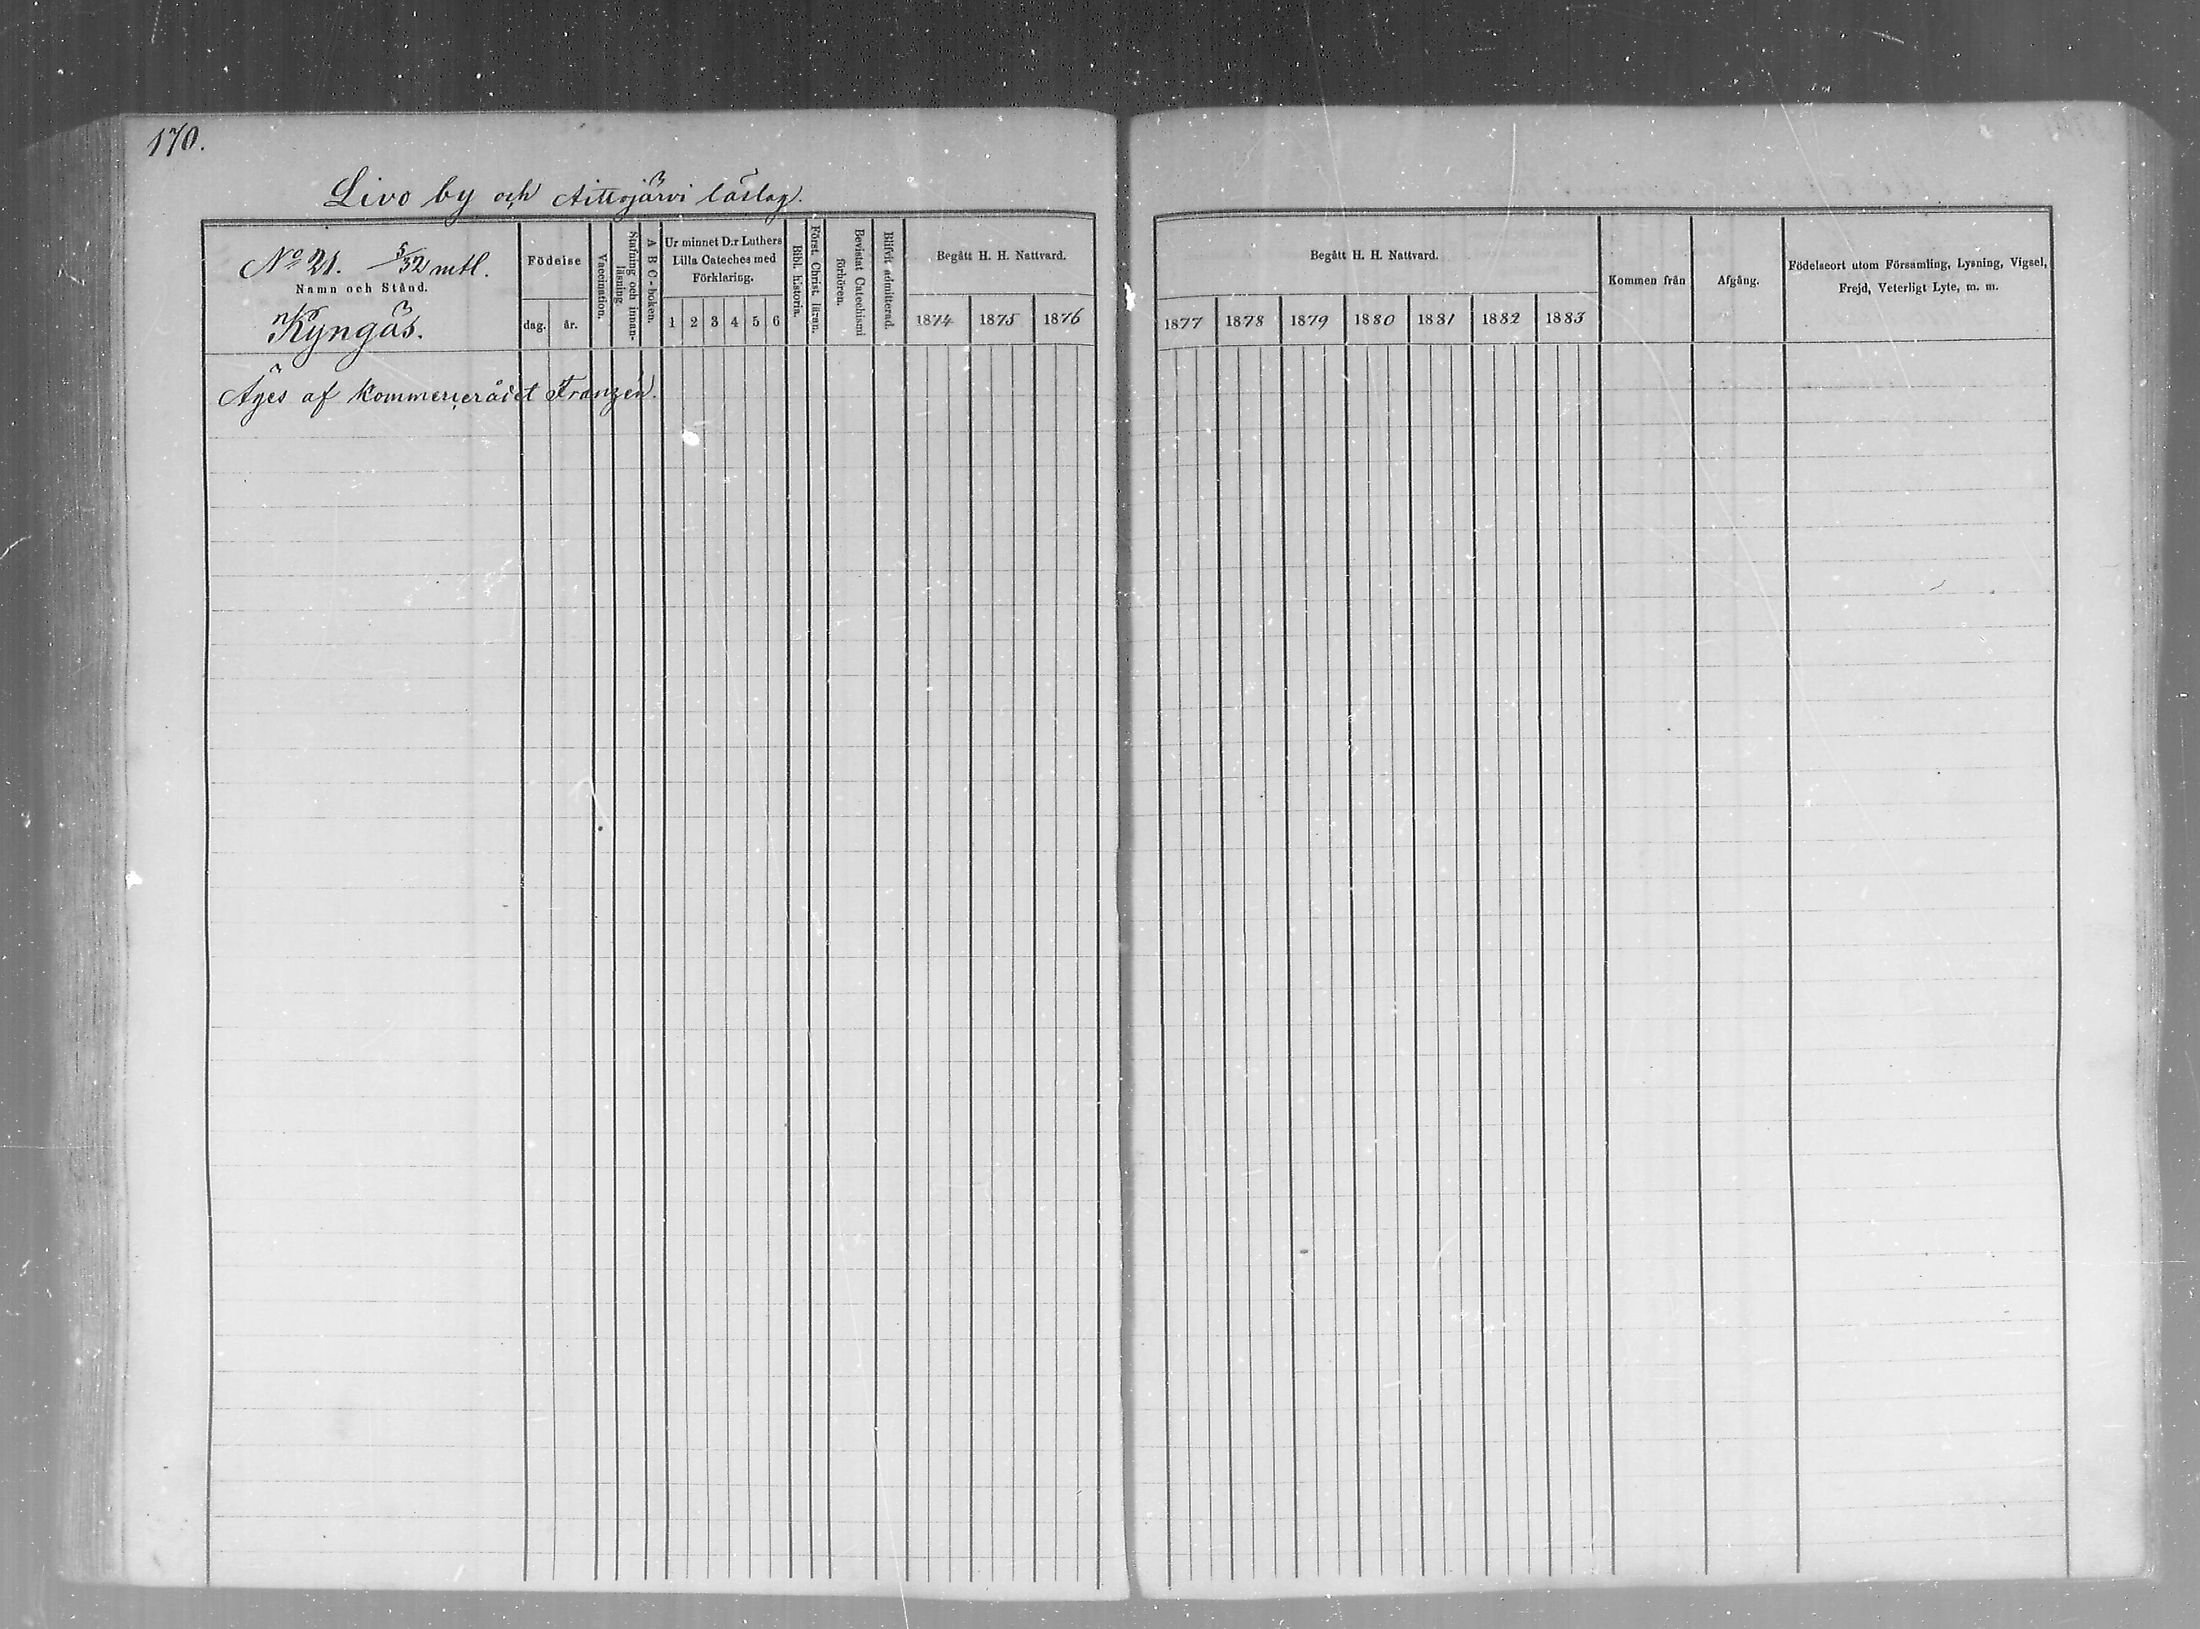 170.
Livo by och Aittojärvi läslag.
No 21. 5/32 mtl.
Namn och Stånd.
Kyngäs.
Födelse
dag. år.
Vaccination.
Stafning och innan-
läsning.
A B C-boken.
Ur minnet D:r Luthers
Lilla Cateches med
Förklaring.
1 2 3 4 5 6
Bibl. historia.
Först. Christ. läran.
Bevistat Catechismi
förhören.
Blifvit admitterad.
Begått H. H. Nattvard.
1874 1875 1876
Äges af Kommerserådet Franzén.
Begått H. H. Nattvard.
1877 1878 1879 1880 1881 1882 1883
Kommen från
Afgång.
Födelseort utom Församling, Lysning, Vigsel,
Frejd, Veterligt Lyte, m. m.